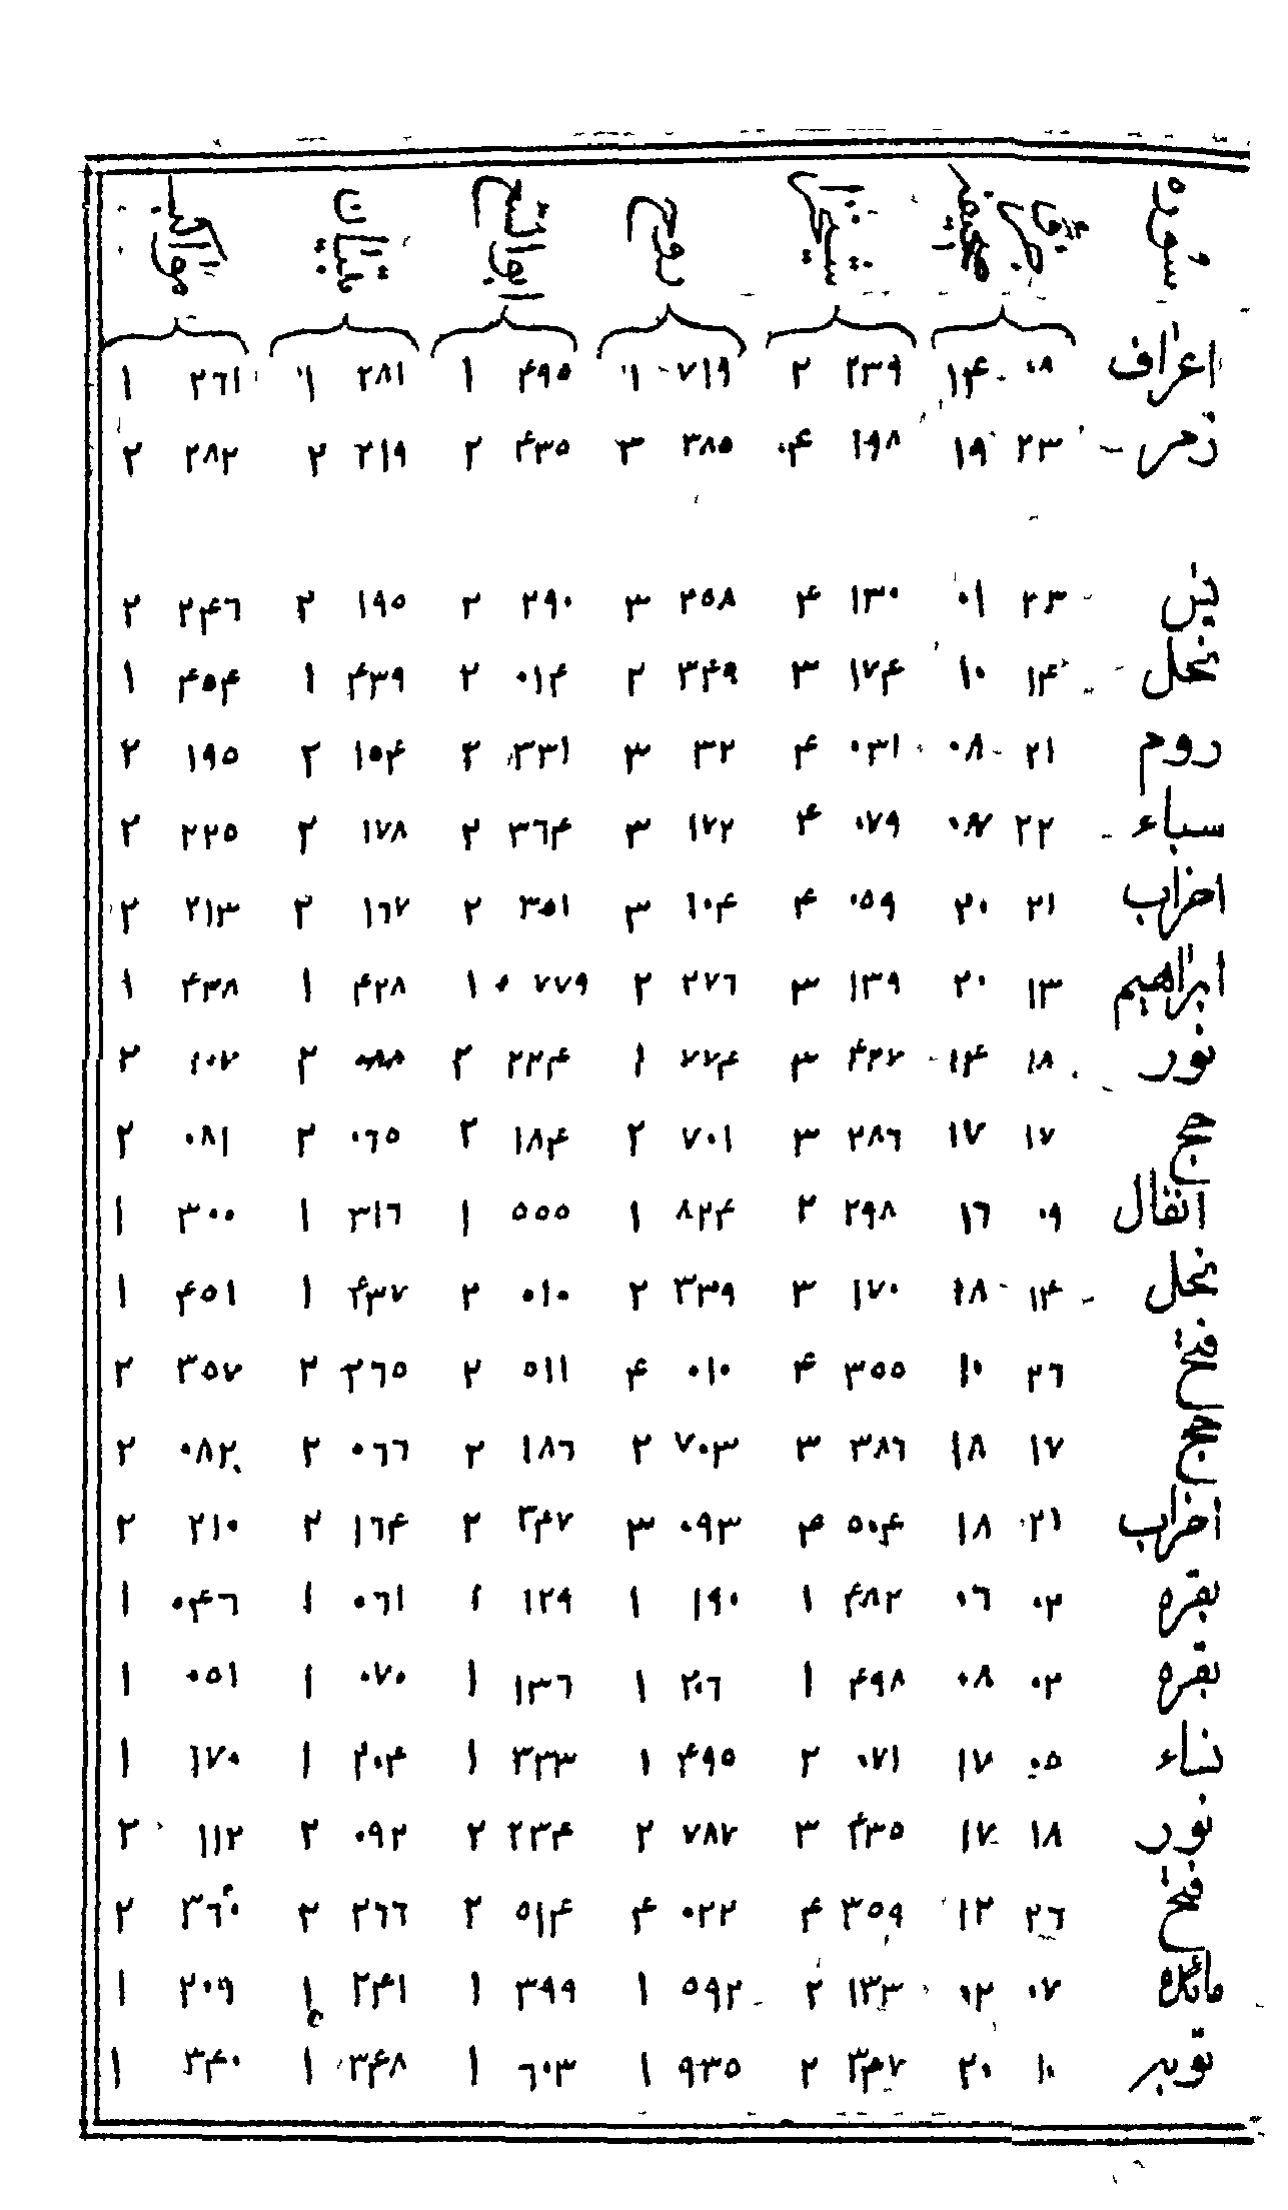 سوره
اعراف ۰۸ ۱۴ ۲۳۹ ۲ ۷۱۹ ۱ ۴۹۵ ۱ ۲۸۱ ۱ ۲۶۱ ۱
زمر ۲۳ ۱۹ ۱۹۸ ۴ ۳۸۵ ۳ ۴۳۵ ۲ ۲۱۹ ۲ ۲۸۲ ۲
یٰس ۲۳ ۰۱ ۱۳۰ ۴ ۲۵۸ ۳ ۲۹۰ ۲ ۱۹۵ ۲ ۲۴۶ ۲
نحل ۱۴ ۱۰ ۱۷۴ ۳ ۳۴۹ ۲ ۰۱۴ ۲ ۴۳۹ ۱ ۴۵۴ ۱
روم ۲۱ ۰۸ ۰۳۱ ۴ ۳۲ ۳ ۳۳۱ ۲ ۱۵۴ ۲ ۱۹۵ ۲
سباء ۲۲ ۰۷۹ ۴ ۱۷۲ ۳ ۳۶۴ ۲ ۱۷۸ ۲ ۲۲۵ ۲
احزاب ۲۱ ۲۰ ۰۵۹ ۴ ۱۰۴ ۳ ۳۵۱ ۲ ۱۶۷ ۲ ۲۱۳ ۲
ابراھیم ۱۳ ۲۰ ۱۳۹ ۳ ۲۷۶ ۲ ۷۷۹ ۱ ۴۲۸ ۱ ۴۳۸ ۱
نور ۱۸ ۱۴ ۴۲۷ ۳ ۷۷۴ ۱ ۲۲۴ ۲ ۰۸۸ ۲ ۱۰۷ ۲
حج ۱۷ ۱۷ ۲۸۶ ۳ ۷۰۱ ۲ ۱۸۴ ۲ ۰۶۵ ۲ ۰۸۱ ۲
انفال ۰۹ ۱۶ ۲۹۸ ۲ ۸۲۴ ۱ ۵۵۵ ۱ ۳۱۶ ۱ ۳۰۰ ۱
نحل ۱۴ ۱۸ ۱۷۰ ۳ ۳۳۹ ۲ ۰۱۰ ۲ ۴۳۷ ۱ ۴۵۱ ۱
فتح ۲۶ ۱۰ ۳۵۵ ۴ ۰۱۰ ۴ ۵۱۱ ۲ ۲۶۵ ۲ ۳۵۷ ۲
حج ۱۷ ۱۸ ۳۸۶ ۳ ۷۰۳ ۲ ۱۸۶ ۲ ۰۶۶ ۲ ۰۸۲ ۲
احزاب ۲۱ ۱۸ ۵۰۴ ۴ ۰۹۳ ۳ ۳۴۷ ۲ ۱۶۴ ۲ ۲۱۰ ۲
بقرہ ۰۲ ۰۶ ۴۸۲ ۱ ۱۹۰ ۱ ۱۲۹ ۱ ۰۶۱ ۱ ۰۴۶ ۱
بقرہ ۰۲ ۰۸ ۴۹۸ ۱ ۲۰۶ ۱ ۱۳۶ ۱ ۰۷۰ ۱ ۰۵۱ ۱
نساء ۰۵ ۱۷ ۰۷۱ ۲ ۴۹۵ ۱ ۳۳۳ ۱ ۲۰۴ ۱ ۱۷۰ ۱
نور ۱۸ ۱۷ ۴۳۵ ۳ ۷۸۷ ۲ ۲۳۴ ۲ ۰۹۲ ۲ ۱۱۲ ۲
فتح ۲۶ ۱۲ ۳۵۹ ۴ ۰۲۲ ۴ ۵۱۴ ۲ ۲۶۶ ۲ ۳۶۰ ۲
مائدہ ۰۷ ۰۲ ۱۳۳ ۲ ۵۹۲ ۱ ۳۹۹ ۱ ۲۴۱ ۱ ۲۰۹ ۱
توبہ ۱۰ ۲۰ ۳۴۷ ۲ ۹۳۵ ۱ ۶۰۳ ۱ ۳۴۸ ۱ ۳۴۰ ۱